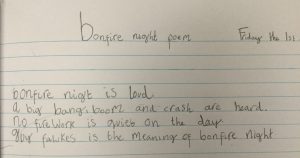 bonfire night poem Friday the 1st
bonfire nigt is loud
a big bang! boom and crash are heard.
no firework is quiet on the day.
guy fawkes is the meaning of bonfire night